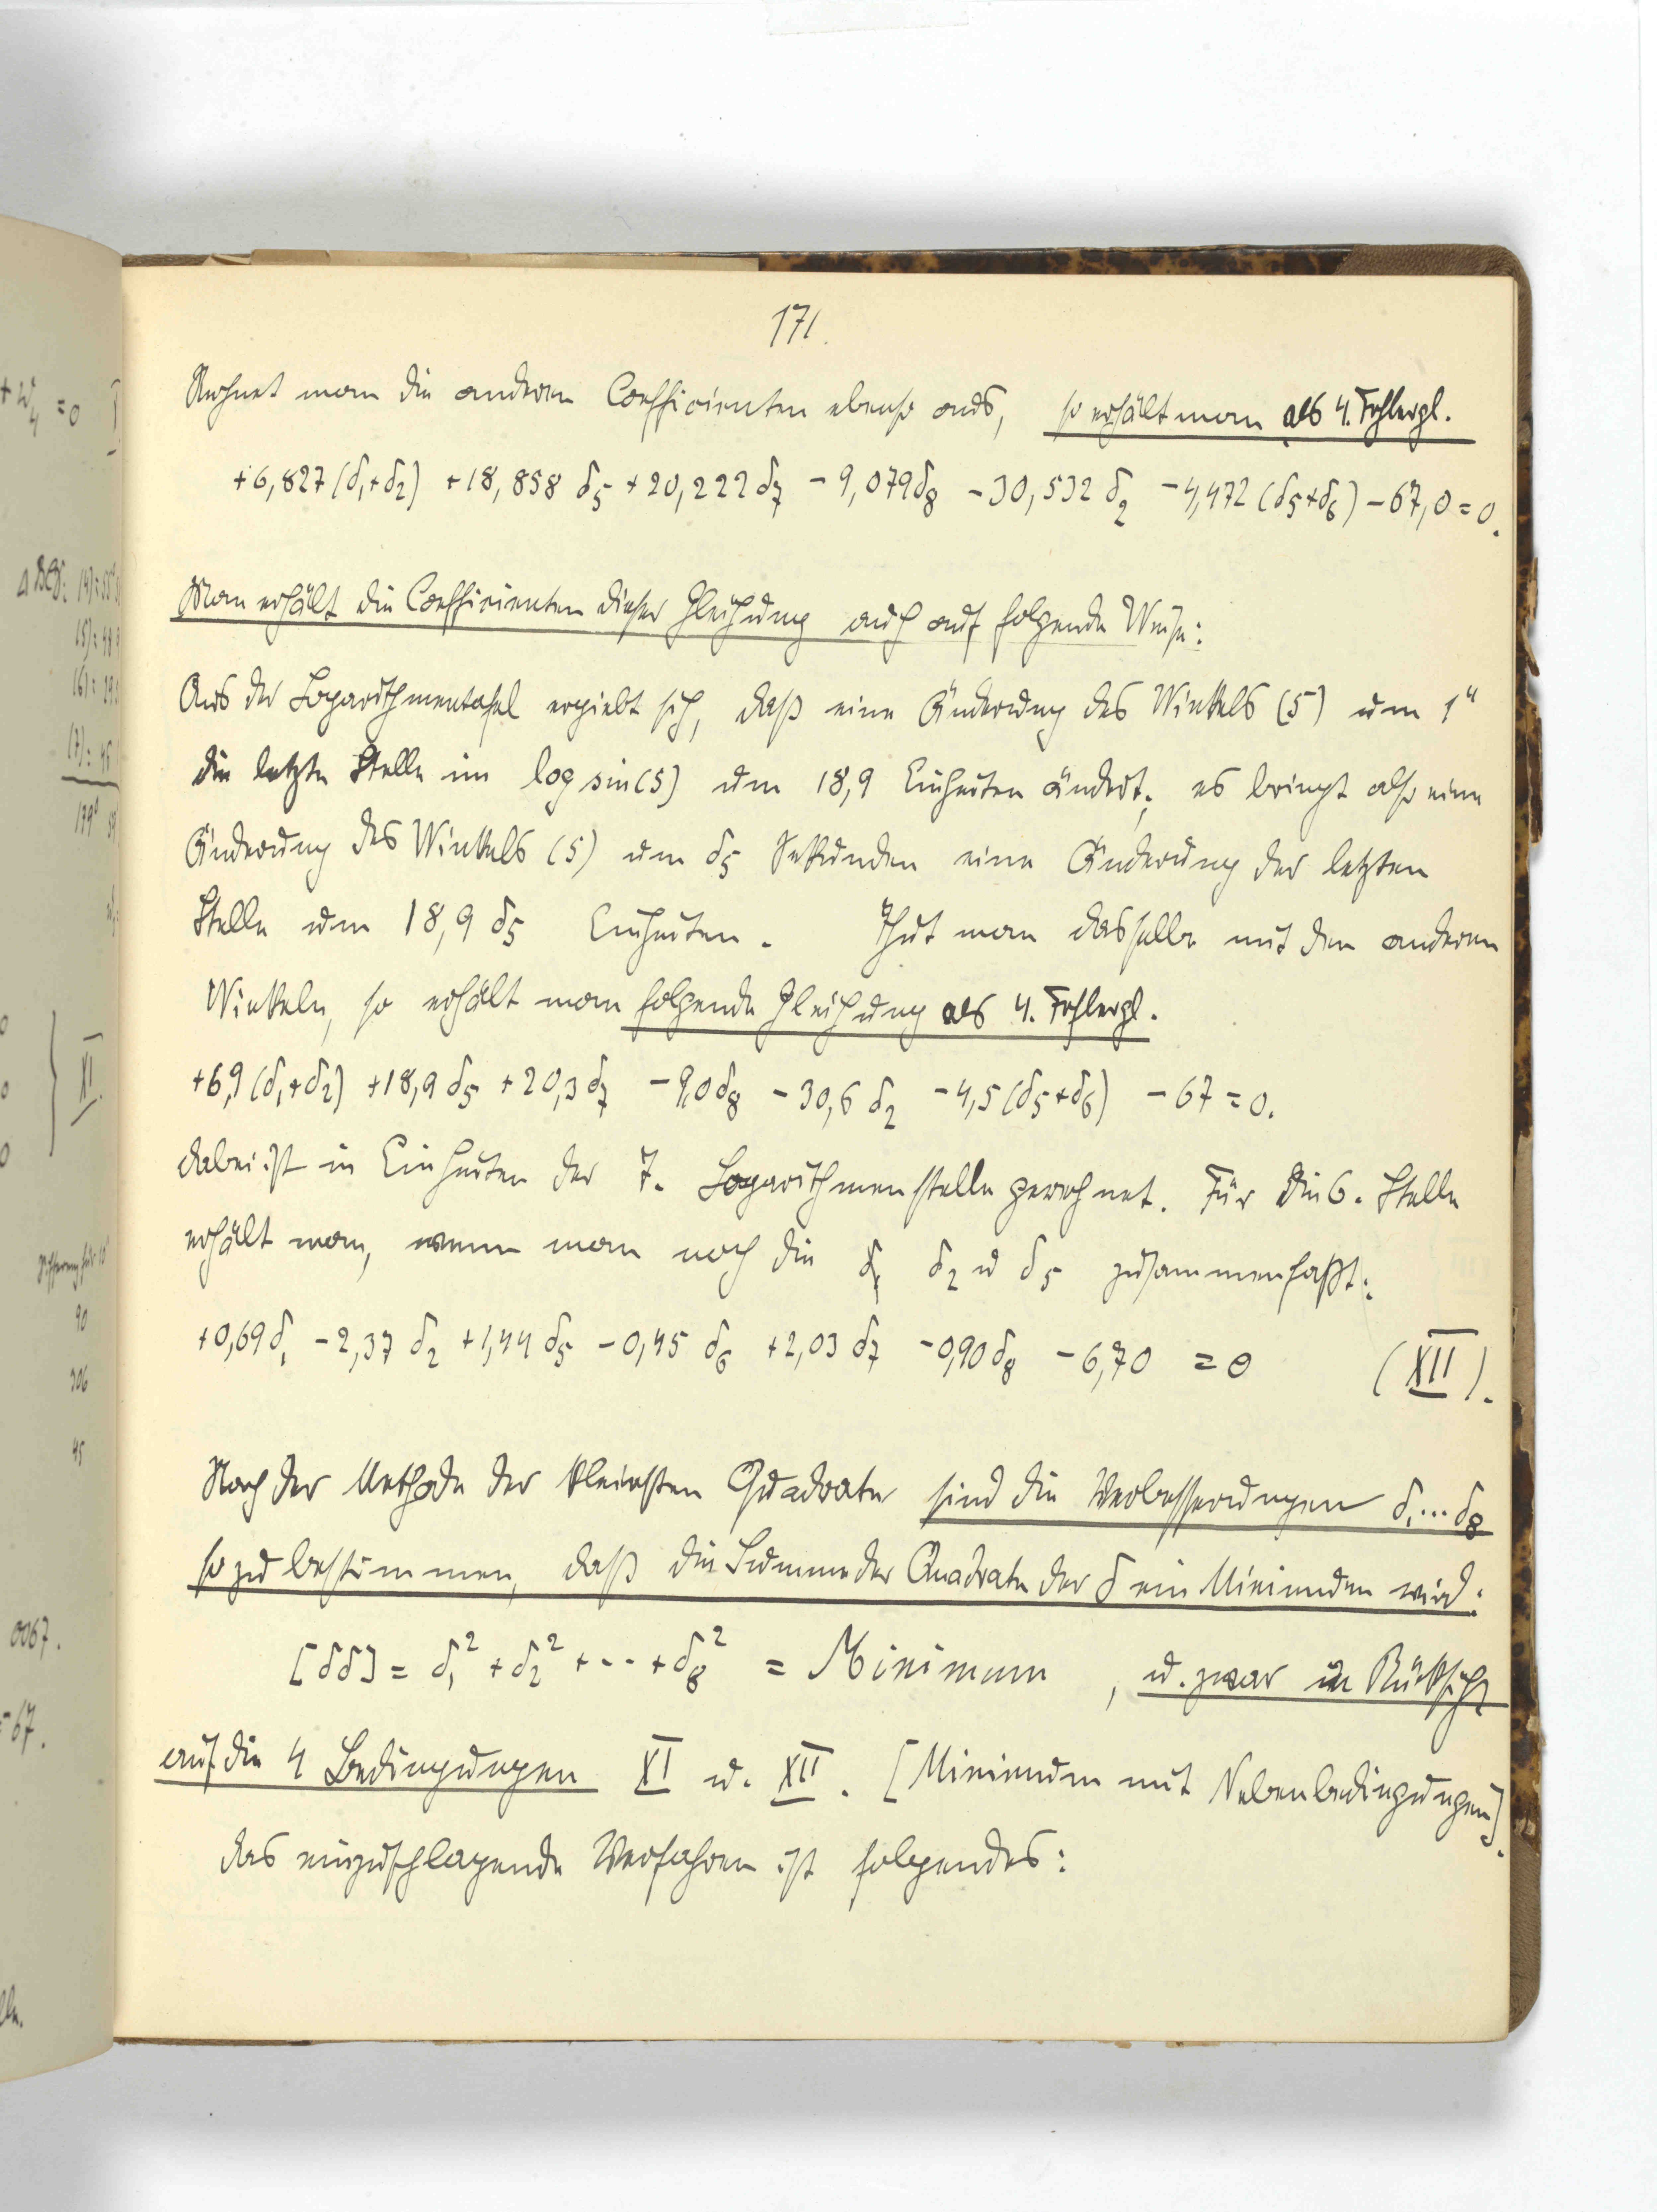 171.
Rechnet man die anderen Coefficienten ebenso aus, so erhält man als 4. Fehlergl.
+6,827(δ₁+δ₂) +18,858 δ₅ +20,222 δ₇ -9,079 δ₈ -30,532 δ₂ -4,472 (δ₅+δ₆) -67,0 = 0.
Man erhält die Coefficienten dieser Gleichung auch auf folgende Weise:
Aus der Logarithmentafel ergiebt sich, daß eine Änderung des Winkels (5) um 1"
die letzte Stelle im log sin(5) um 18,9 Einheiten ändert; es bringt also eine
Änderung des Winkels (5) um δ₅ Sekunden eine Änderung der letzten
Stelle um 18,9 δ₅ Einheiten. Thut man dasselbe mit den anderen
Winkeln, so erhält man folgende Gleichung als 4. Fehlergl.
+6,9(δ₁+δ₂) +18,9 δ₅ +20,3 δ₇ -9,0 δ₈ -30,6 δ₂ -4,5(δ₅+δ₆) -67 = 0.
dabei ist in Einheiten der 7. Logarithmenstelle gerechnet. Für die 6. Stelle
erhält man, wenn man noch die δ₁ δ₂ u δ₅ zusammenfaßt:
+0,69 δ₁ -2,37 δ₂ +1,44 δ₅ -0,45 δ₆ +2,03 δ₇ -0,90 δ₈ -6,70 = 0 (XII).
Nach der Methode der kleinsten Quadrate sind die Verbesserungen δ₁...δ₈
so zu bestimmen, daß die Summe der Quadrate der δ ein Minimum wird:
[δδ] = δ₁² + δ₂² + ... + δ₈² = Minimum, u. zwar in Rücksicht
auf die 4 Bedingungen XI u. XII. [Minimum mit Nebenbedingungen].
das einzuschlagende Verfahren ist folgendes:
+w₄ = 0
XI.
90
306
45
0067.
-67.